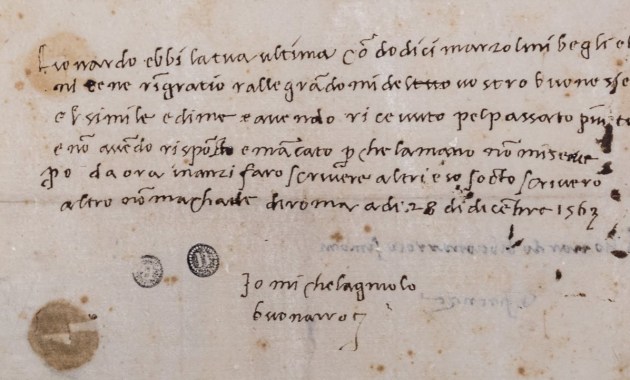 Lionardo ebbi la tua ultima cō dodici marzolini begli e b
ni te ne rīgratio rallegrādomi del vostro buono esse
e l simile e di me e avendo ricevuto pel passato piu
e nō avēdo risposto e mācato p̱che la mano nō mi serve
po da ora inanzi faro scrivere altri e io socto scrivero
altro nō m achade di roma a di 28 di dicēbre 1563
Io michelagniolo
buonarroti